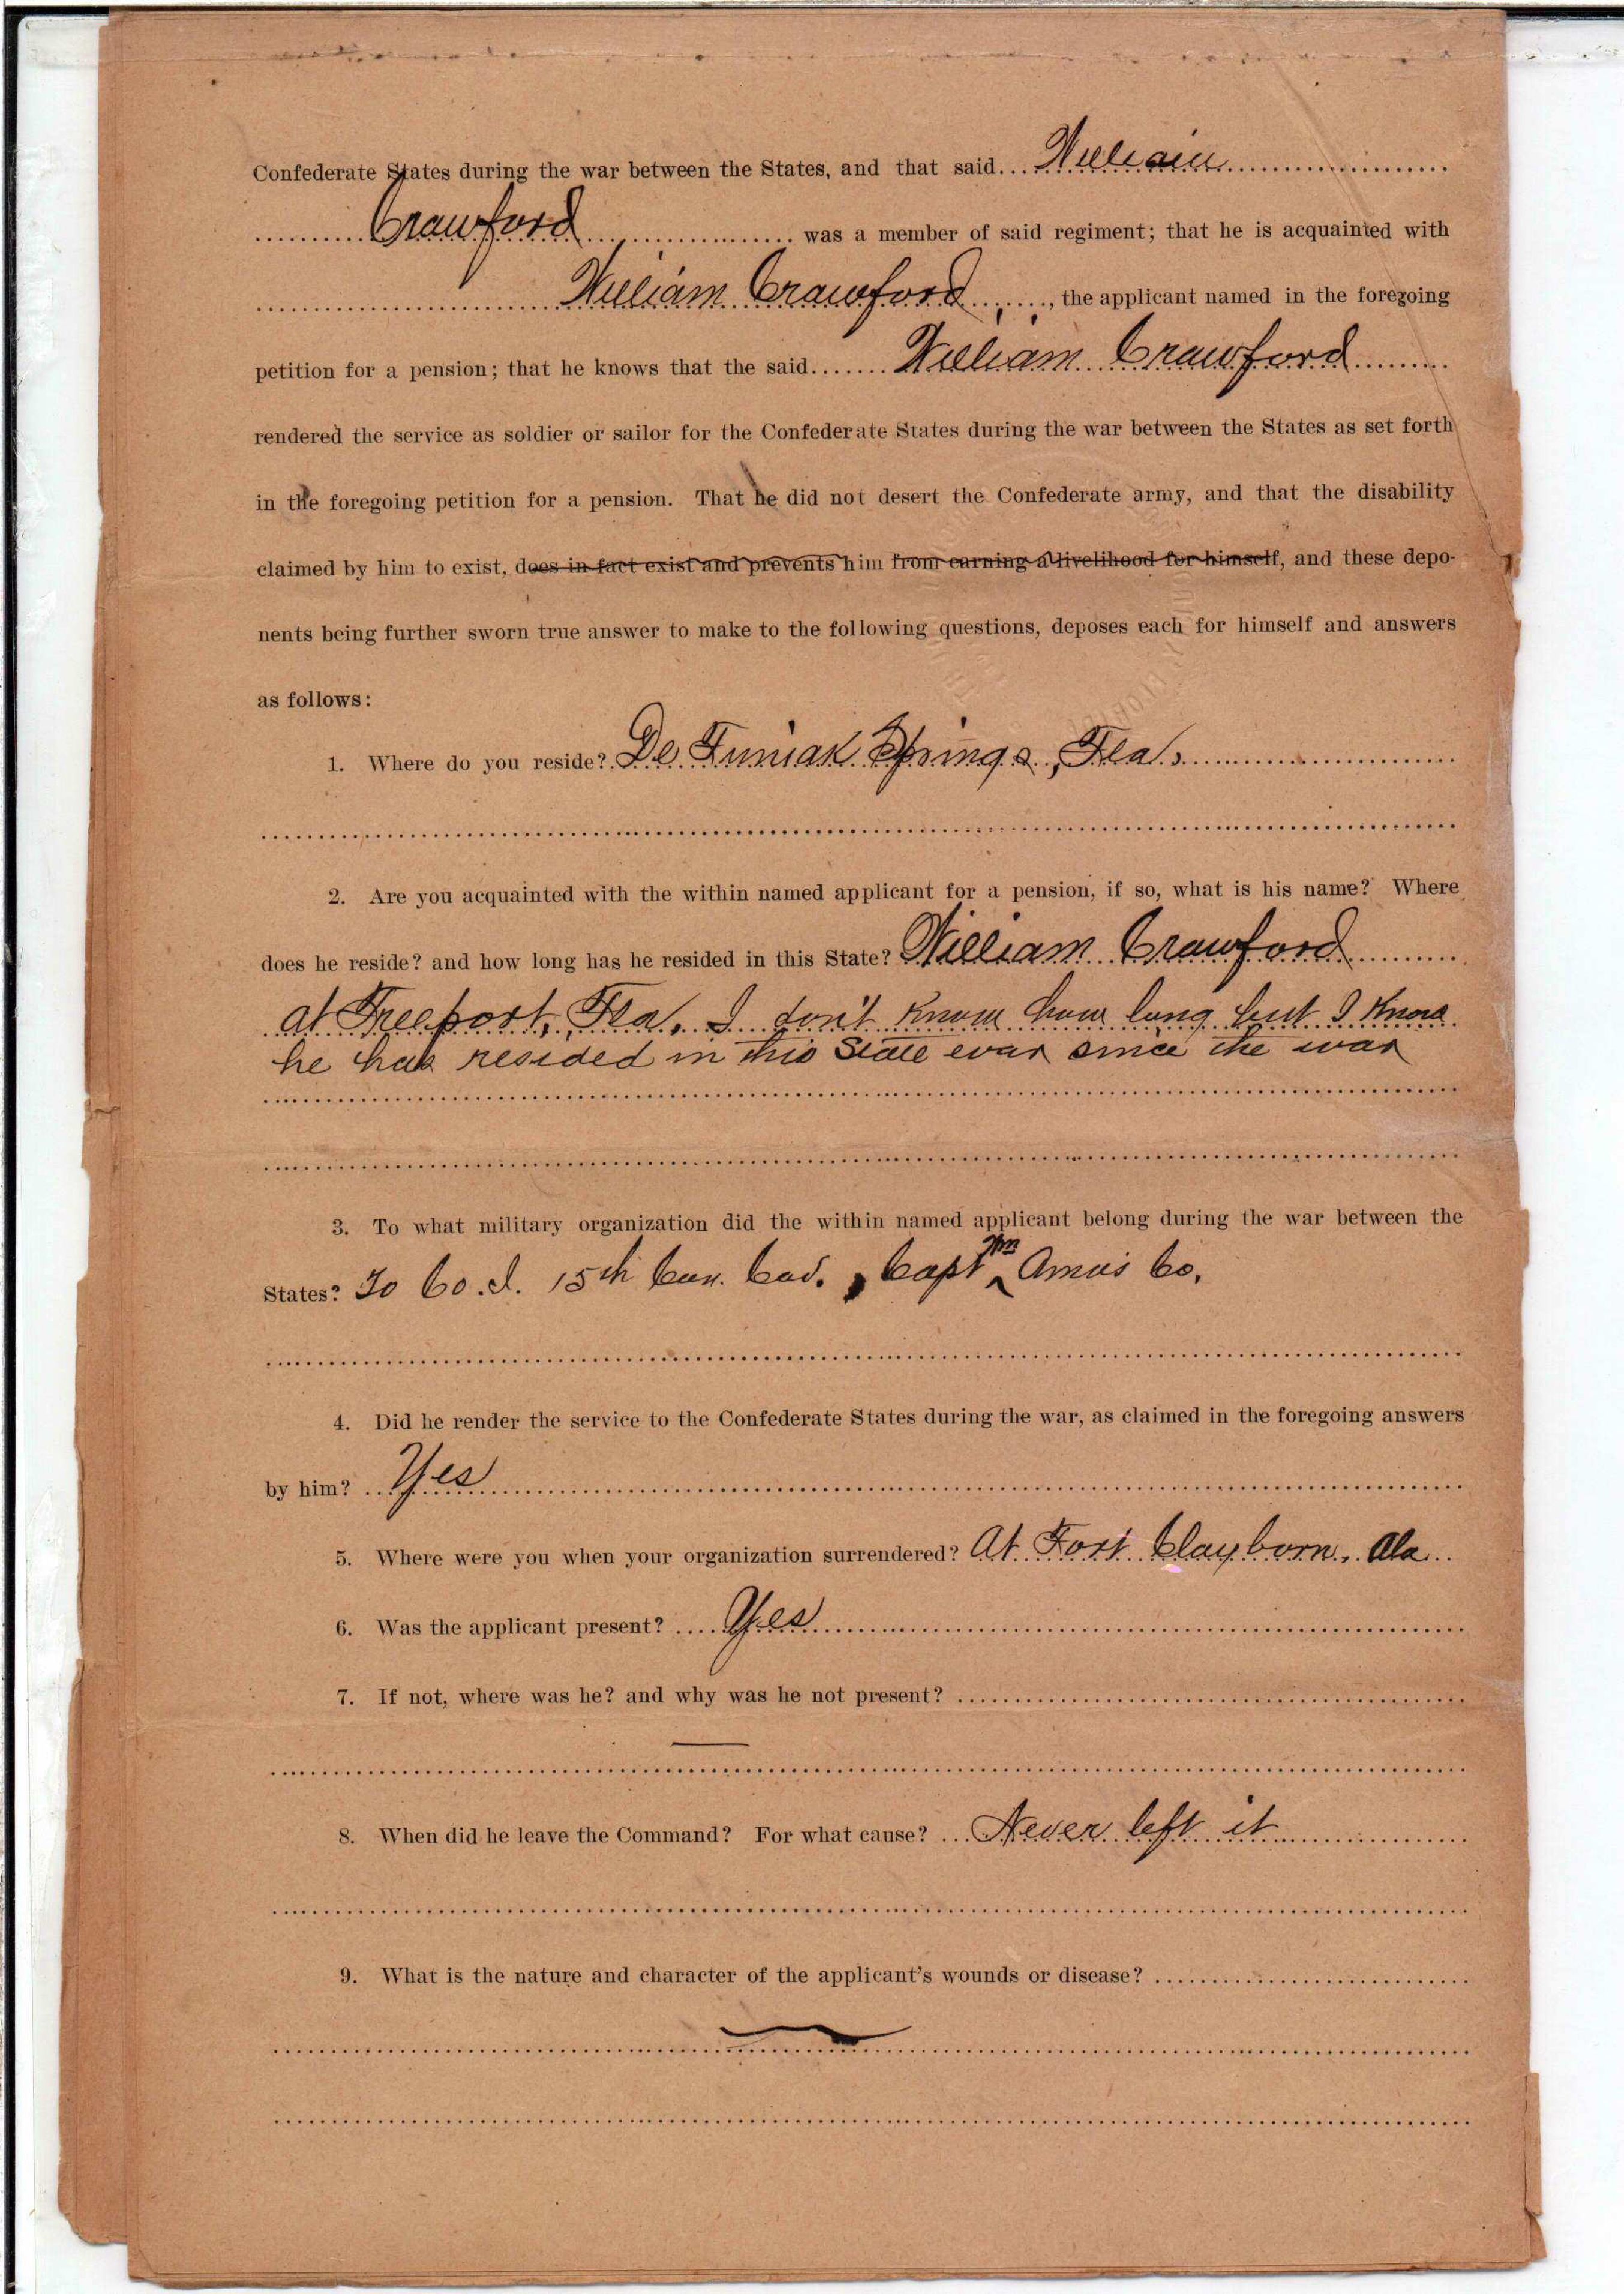 Confederate States during the war between the States, and that said... William
Crawford was a member of said regiment; that he is acquainted with
William Crawford, the applicant named in the foregoing
petition for a pension; that he knows that the said William Crawford
rendered the service as soldier or sailor for the Confederate States during the war between the States as set forth
in the foregoing petition for a pension. That he did not desert the Confederate army, and that the disability
claimed by him to exist, does in fact exist and prevents him from earning a livelihood for himself, and these depo-
nents being further sworn true answer to make to the following questions, deposes each for himself and answers
as follows:
1. Where do you reside? De Funiak Springs, Fla.
2. Are you acquainted with the within named applicant for a pension, if so, what is his name? Where
does he reside? and how long has he resided in this State? William Crawford
at Freeport, Fla. I don't know how long but I know
he has resided in this State ever since the war
3. To what military organization did the within named applicant belong during the war between the
States? To Co. I. 15th Con. Cav., Capt Wm Amos Co.
4. Did he render the service to the Confederate States during the war, as claimed in the foregoing answers
by him? Yes
5. Where were you when your organization surrendered? At Fort Clayborn, Ala
6. Was the applicant present? Yes
7. If not, where was he? and why was he not present?
8. When did he leave the Command? For what cause? Never left it
9. What is the nature and character of the applicant's wounds or disease?